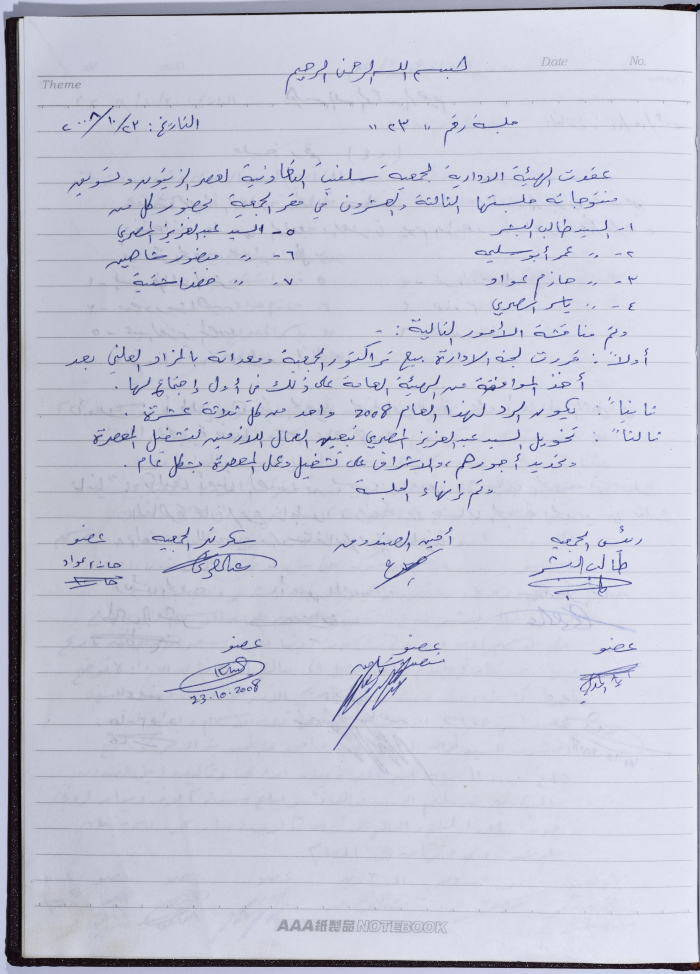 Theme
Date
No.
بسم الله الرحمن الرحيم
جلسة رقم " ٢٣ "
التاريخ: ٢٣/١٠/٢٠٠٨
عقدت الهيئة الادارية لجمعية سلفيت التعاونية لعصر الزيتون وتسويق
منتوجاته جلستها الثالثة والعشرون في مقر الجمعية بحضور كل من
١- السيد طالب البشر
٥- السيد عبد العزيز المصري
٢- " عمر أبو سليمه
٦- " منصور شاهين
٣- " حازم عواد
٧- " خضر اشتية
٤- " ياسر المصري
وتم مناقشة الأمور التالية : -
أولاً : قررت لجنة الادارة بيع تراكتور الجمعية ومعداته بالمزاد العلني بعد
أخذ الموافقة من الهيئة العامة على ذلك في أول إجتماع لها .
ثانياً : يكون الرد لهذا العام 2008 واحد من كل ثلاثة عشرة .
ثالثاً : تخويل السيد عبد العزيز المصري تعيين العمال اللازمين لتشغيل المعصرة
وتحديد أجورهم ، والاشراف على تشغيل وعمل المعصرة بشكل عام .
وتم إنهاء الجلسة
رئيس الجمعية
أمين الصندوق
سكرتير الجمعية
عضو
طالب البشر
حازم عواد
عضو
عضو
عضو
منصور شاهين
23.10.2008
AAA紙製品NOTEBOOK